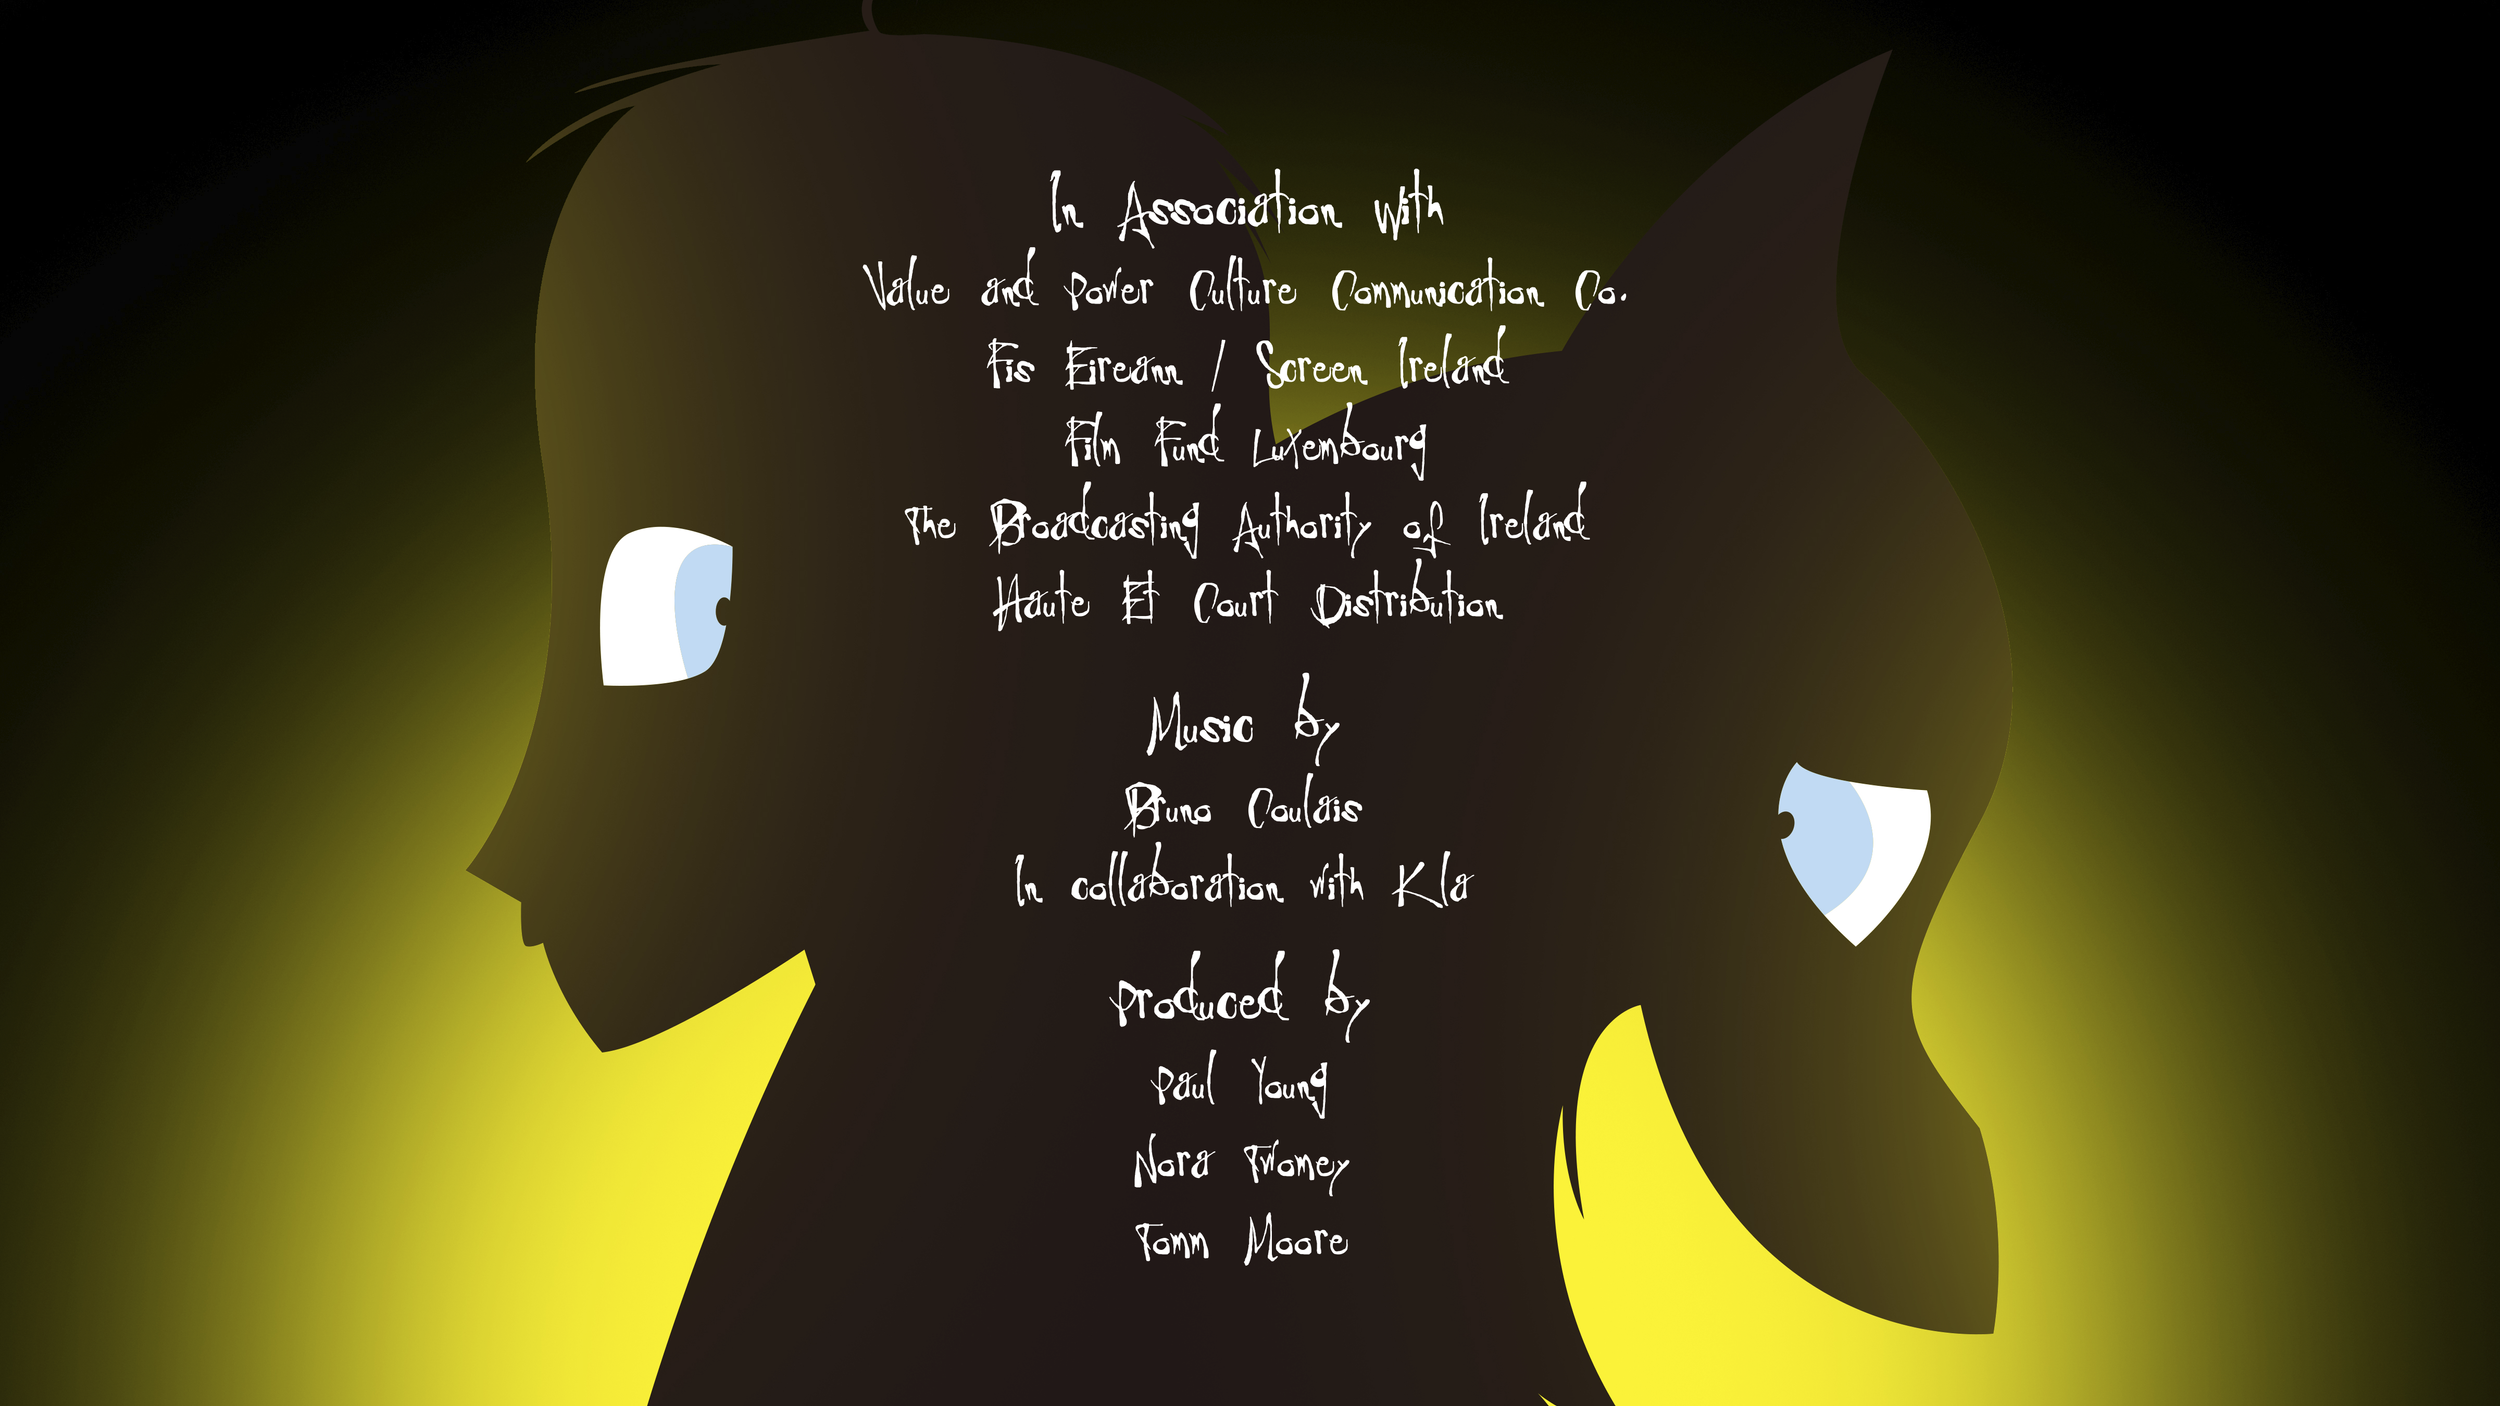 In Association with
Value and Power Culture Communication Co.
Fis Eireann / Screen Ireland
Film Fund Luxembourg
The Broadcasting Authority of Ireland
Haute Et Court Distribution
Music by
Bruno Coulais
In collaboration with Kla
Produced by
Paul Young
Nora Twomey
Tomm Moore